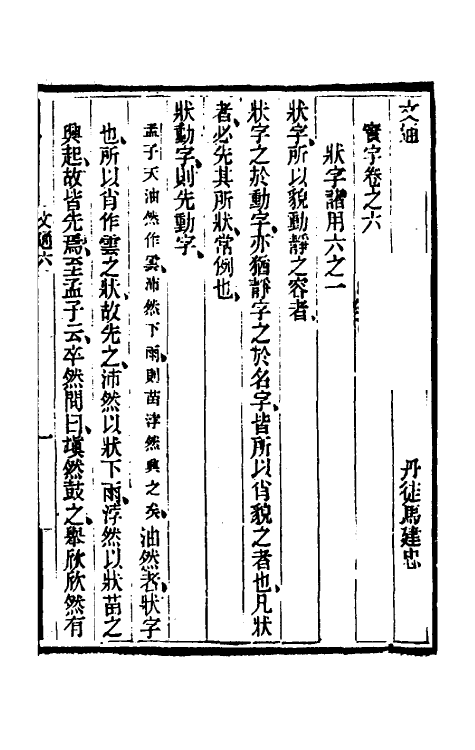 文通　丹徒馬建忠
實字卷之六
狀字諸用六之一
狀字、所以貌動靜之容者、
狀字之於動字、亦猶靜字之於名字、皆所以肖貌之者也、凡狀
者、必先其所狀、常例也、
狀動字、則先動字、
孟子天油然作雲、沛然下雨、則苗浡然興之矣、油然者、狀字
也、所以肖作雲之狀、故先之、沛然以狀下雨、浡然以狀苗之
興起、故皆先焉、至孟子云、卒然問曰、塡然鼓之、舉欣欣然有
文通六　一